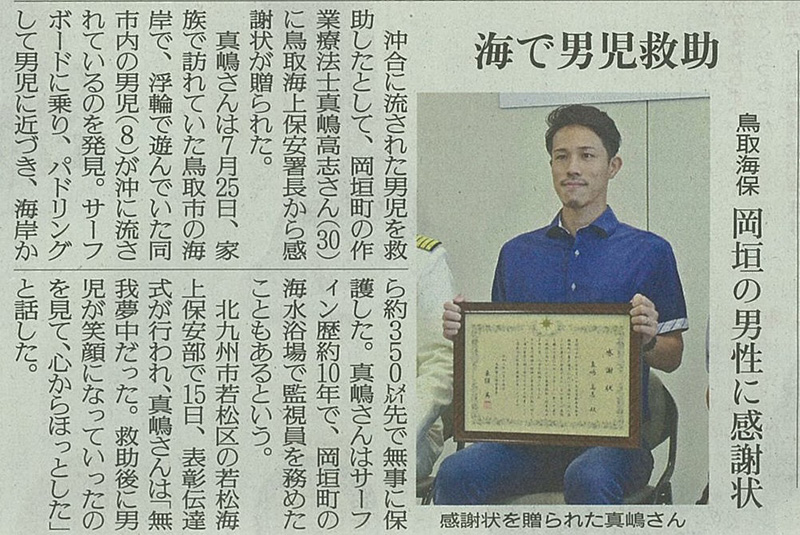 海で男児救助
鳥取海保 岡垣の男性に感謝状
沖合に流された男児を救
助したとして、岡垣町の作
業療法士真嶋高志さん(30)
に鳥取海上保安署長から感
謝状が贈られた。
真嶋さんは7月25日、家
族で訪れていた鳥取市の海
岸で、浮輪で遊んでいた同
市内の男児(8)が沖に流さ
れているのを発見。サーフ
ボードに乗り、パドリング
して男児に近づき、海岸か
ら約350㍍先で無事に保
護した。真嶋さんはサーフ
ィン歴約10年で、岡垣町の
海水浴場で監視員を務めた
こともあるという。
北九州市若松区の若松海
上保安部で15日、表彰伝達
式が行われ、真嶋さんは「無
我夢中だった。救助後に男
児が笑顔になっていったの
を見て、心からほっとした」
と話した。
感謝状
感謝状を贈られた真嶋さん